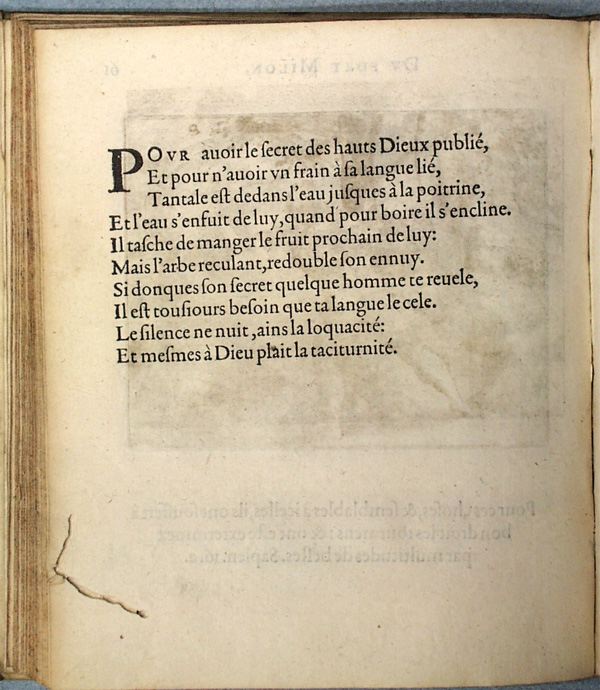 POVR auoir le ſecret des hauts Dieux publié,
Et pour n'auoir vn frain à ſa langue lié,
Tantale eſt dedans l'eau juſques à la poitrine,
Et l'eau s'enfuit de luy, quand pour boire il s'encline.
Il taſche de manger le fruit prochain de luy:
Mais l'arbe reculant, redouble ſon ennuy.
Si donques ſon ſecret quelque homme te reuele,
Il eſt touſiours beſoin que ta langue le cele.
Le ſilence ne nuit, ains la loquacité:
Et meſmes à Dieu plait la taciturnité.